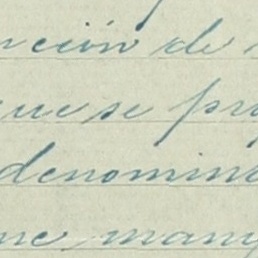 nción de
que se pr
denomin
ne many